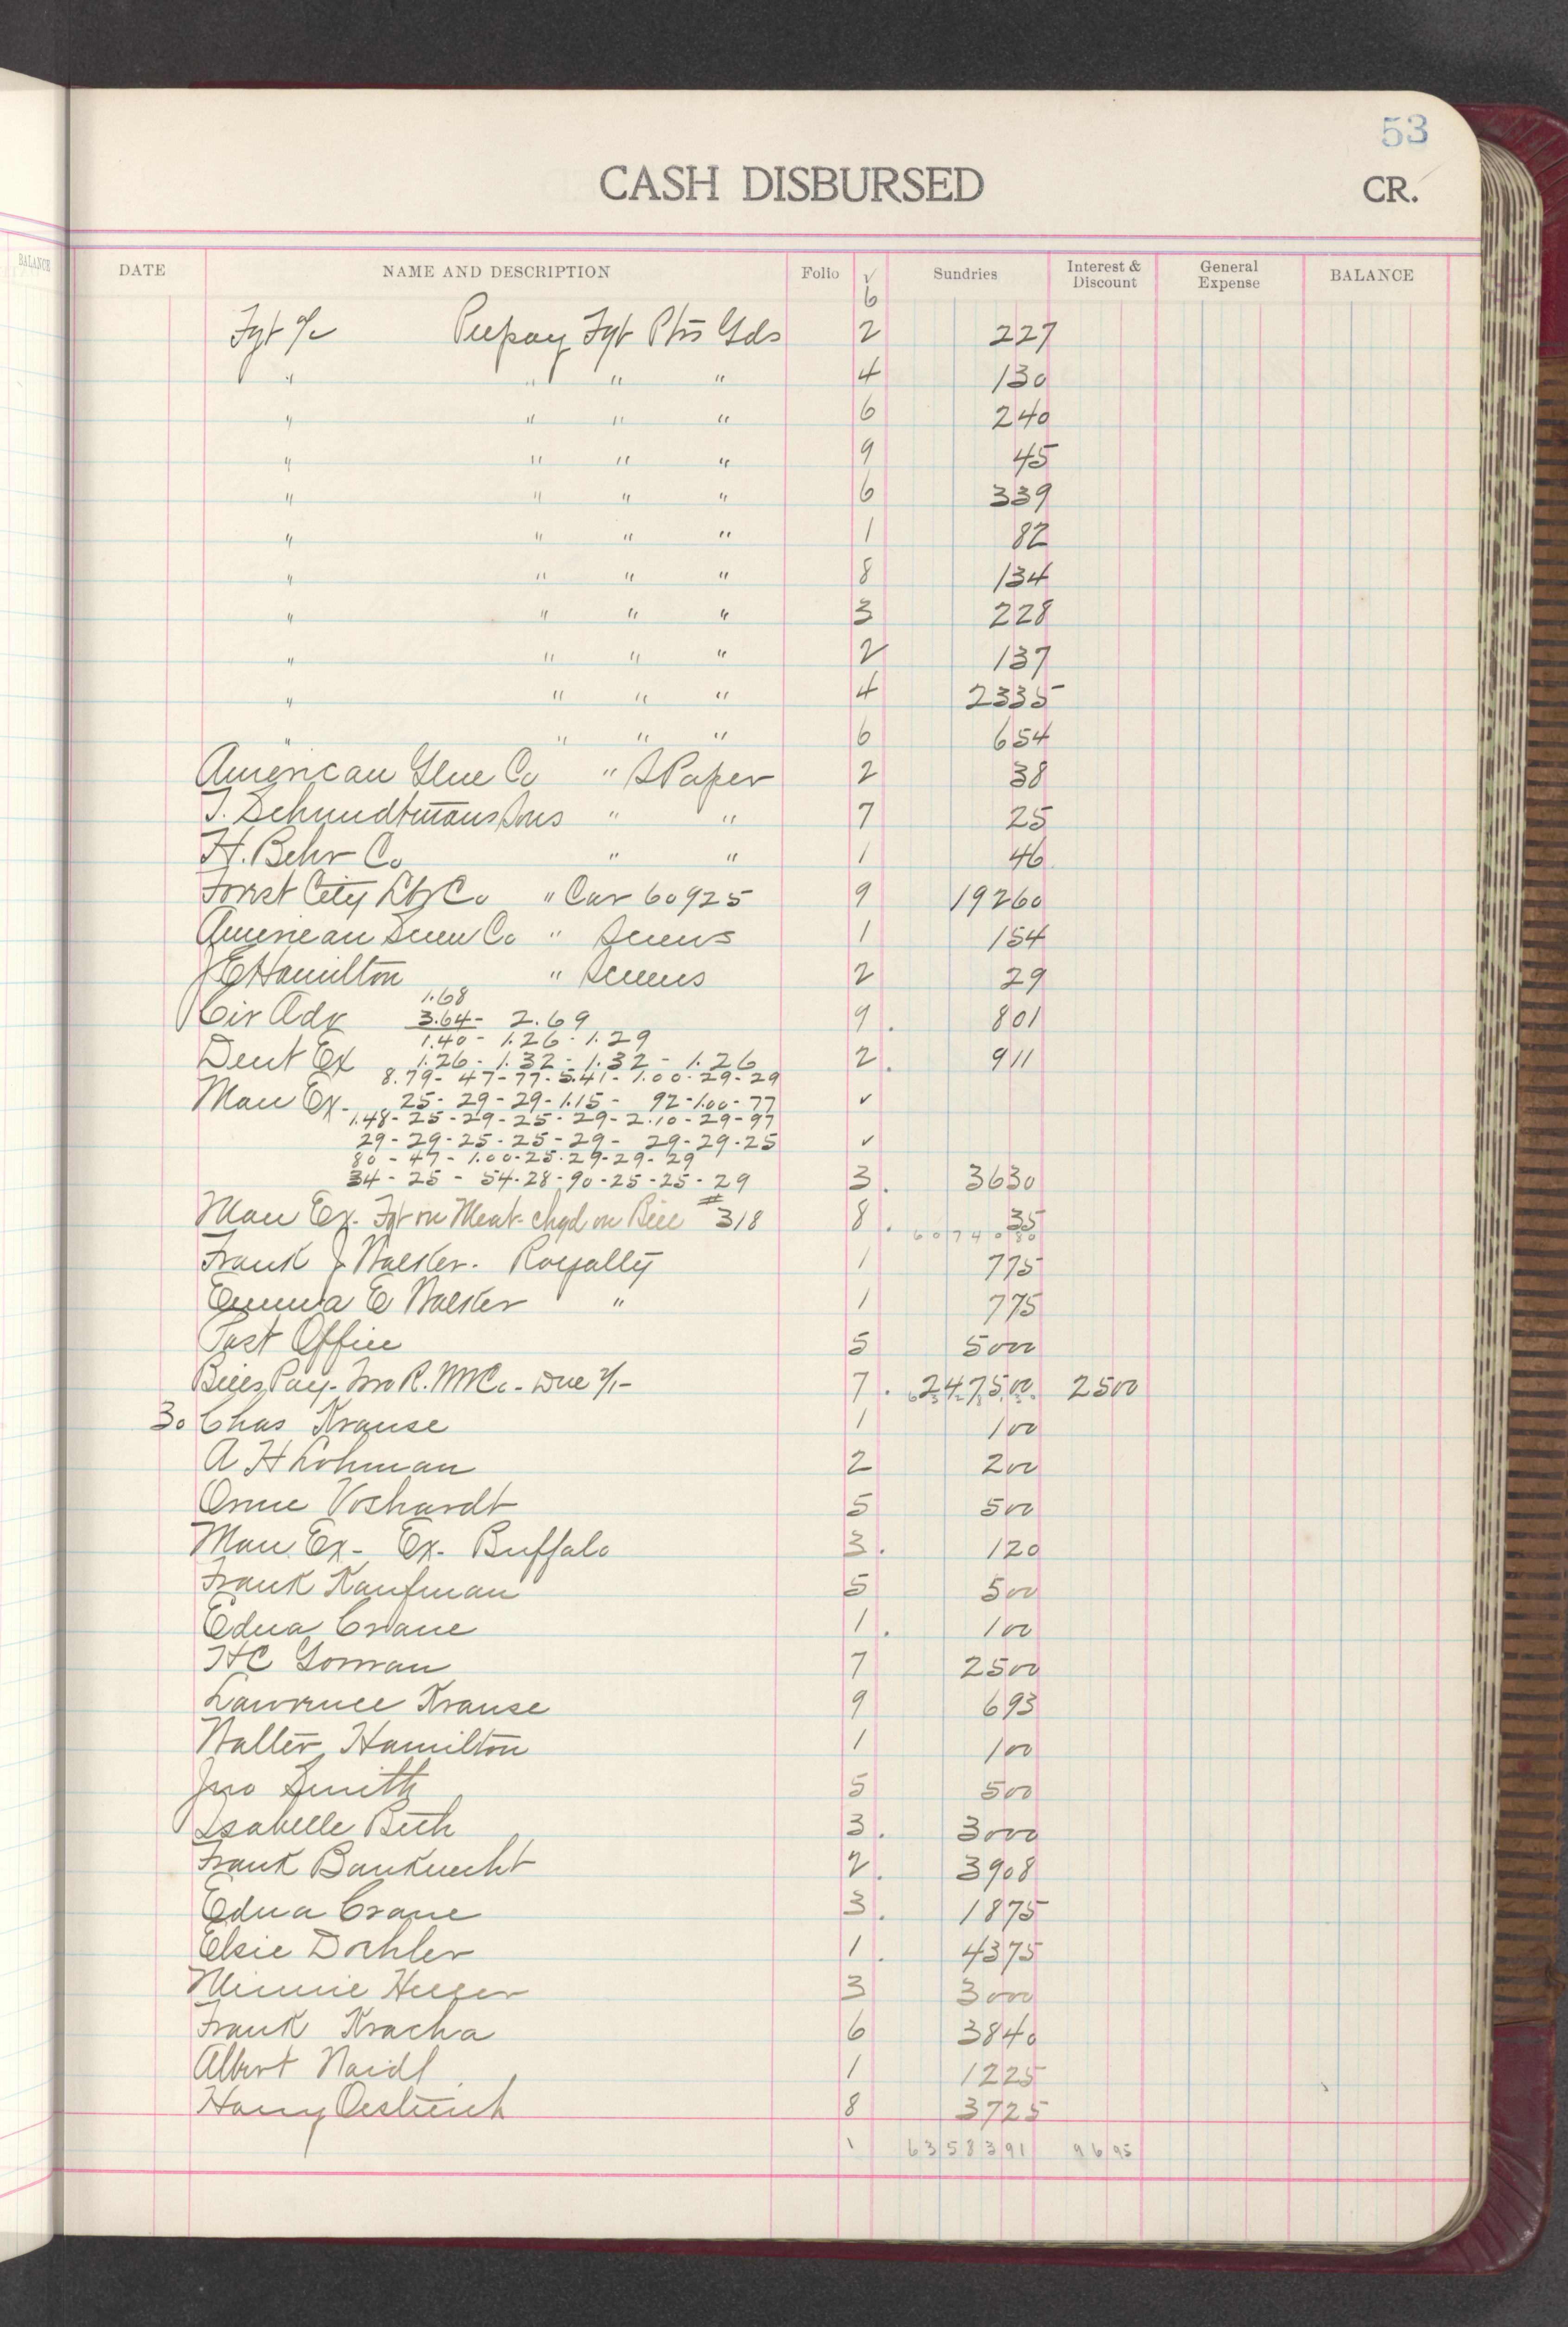 53
CASH DISBURSED CR.
BALANCE DATE NAME AND DESCRIPTION Folio √ Sundries Interest & Discount General Expense BALANCE
6
Fgt a/c Prepay Fgt Ptrs Gds 2 227
" " " " 4 130
" " " " 6 240
" " " " 9 45
" " " " 6 339
" " " " 1 82
" " " " 8 134
" " " " 3 228
" " " " 2 137
" " " " 4 2335
" " " " 6 654
American Glue Co " S Paper 2 38
" " 7 25
H. Behr Co " " 1 46
Forest City Lbr Co " Car 60925 9 19260
American Screw Co " Screws 1 154
J E Hamilton " Screws 2 29
1.68
Cir Adv 3.64 - 2.69 9 . 801
1.40 - 1.26 - 1.29
Dent Ex 1.26 - 1.32 - 1.32 - 1.26 2 . 911
8.79 - 47 - 77 - 5.41 - 1.00 - 29 - 29
Man Ex - 25 - 29 - 29 - 1.15 - 92 - 1.00 - 77 ✓
1.48 - 25 - 29 - 25 - 29 - 2.10 - 29 - 97
29 - 29 - 25 - 25 - 29 - 29 - 29 - 25 ✓
80 - 47 - 1.00 - 25 - 29 - 29 - 29
34 - 25 - 54 - 28 - 90 - 25 - 25 - 29 3 . 3630
Man Ex. Fgt on Meat chgd on Bill #318 8 . 35
6074080
Frank J Walker. Royalty 1 775
Emma E Walker " 1 775
Post Office 5 5000
Bills Pay - R. Co - Due 7 . 247500 2500
30 Chas Krause 1 100
A H Lohman 2 200
Orme Voshardt 5 500
Man Ex - Ex - Buffalo 3 . 120
Frank Kaufman 5 500
Edna Crane 1 . 100
H C Gorman 7 2500
Lawrence Krause 9 693
Walter Hamilton 1 100
Jno Smith 5 500
Isabelle Beth 3 . 3000
Frank Bauknecht 2 . 3908
Edna Crane 3 . 1875
Elsie Dohler 1 . 4375
Minnie 3 3000
Frank Kracha 6 3840
Albert Naidl 1 1225
Harry Oestreich 8 3725
1 6358391 9695